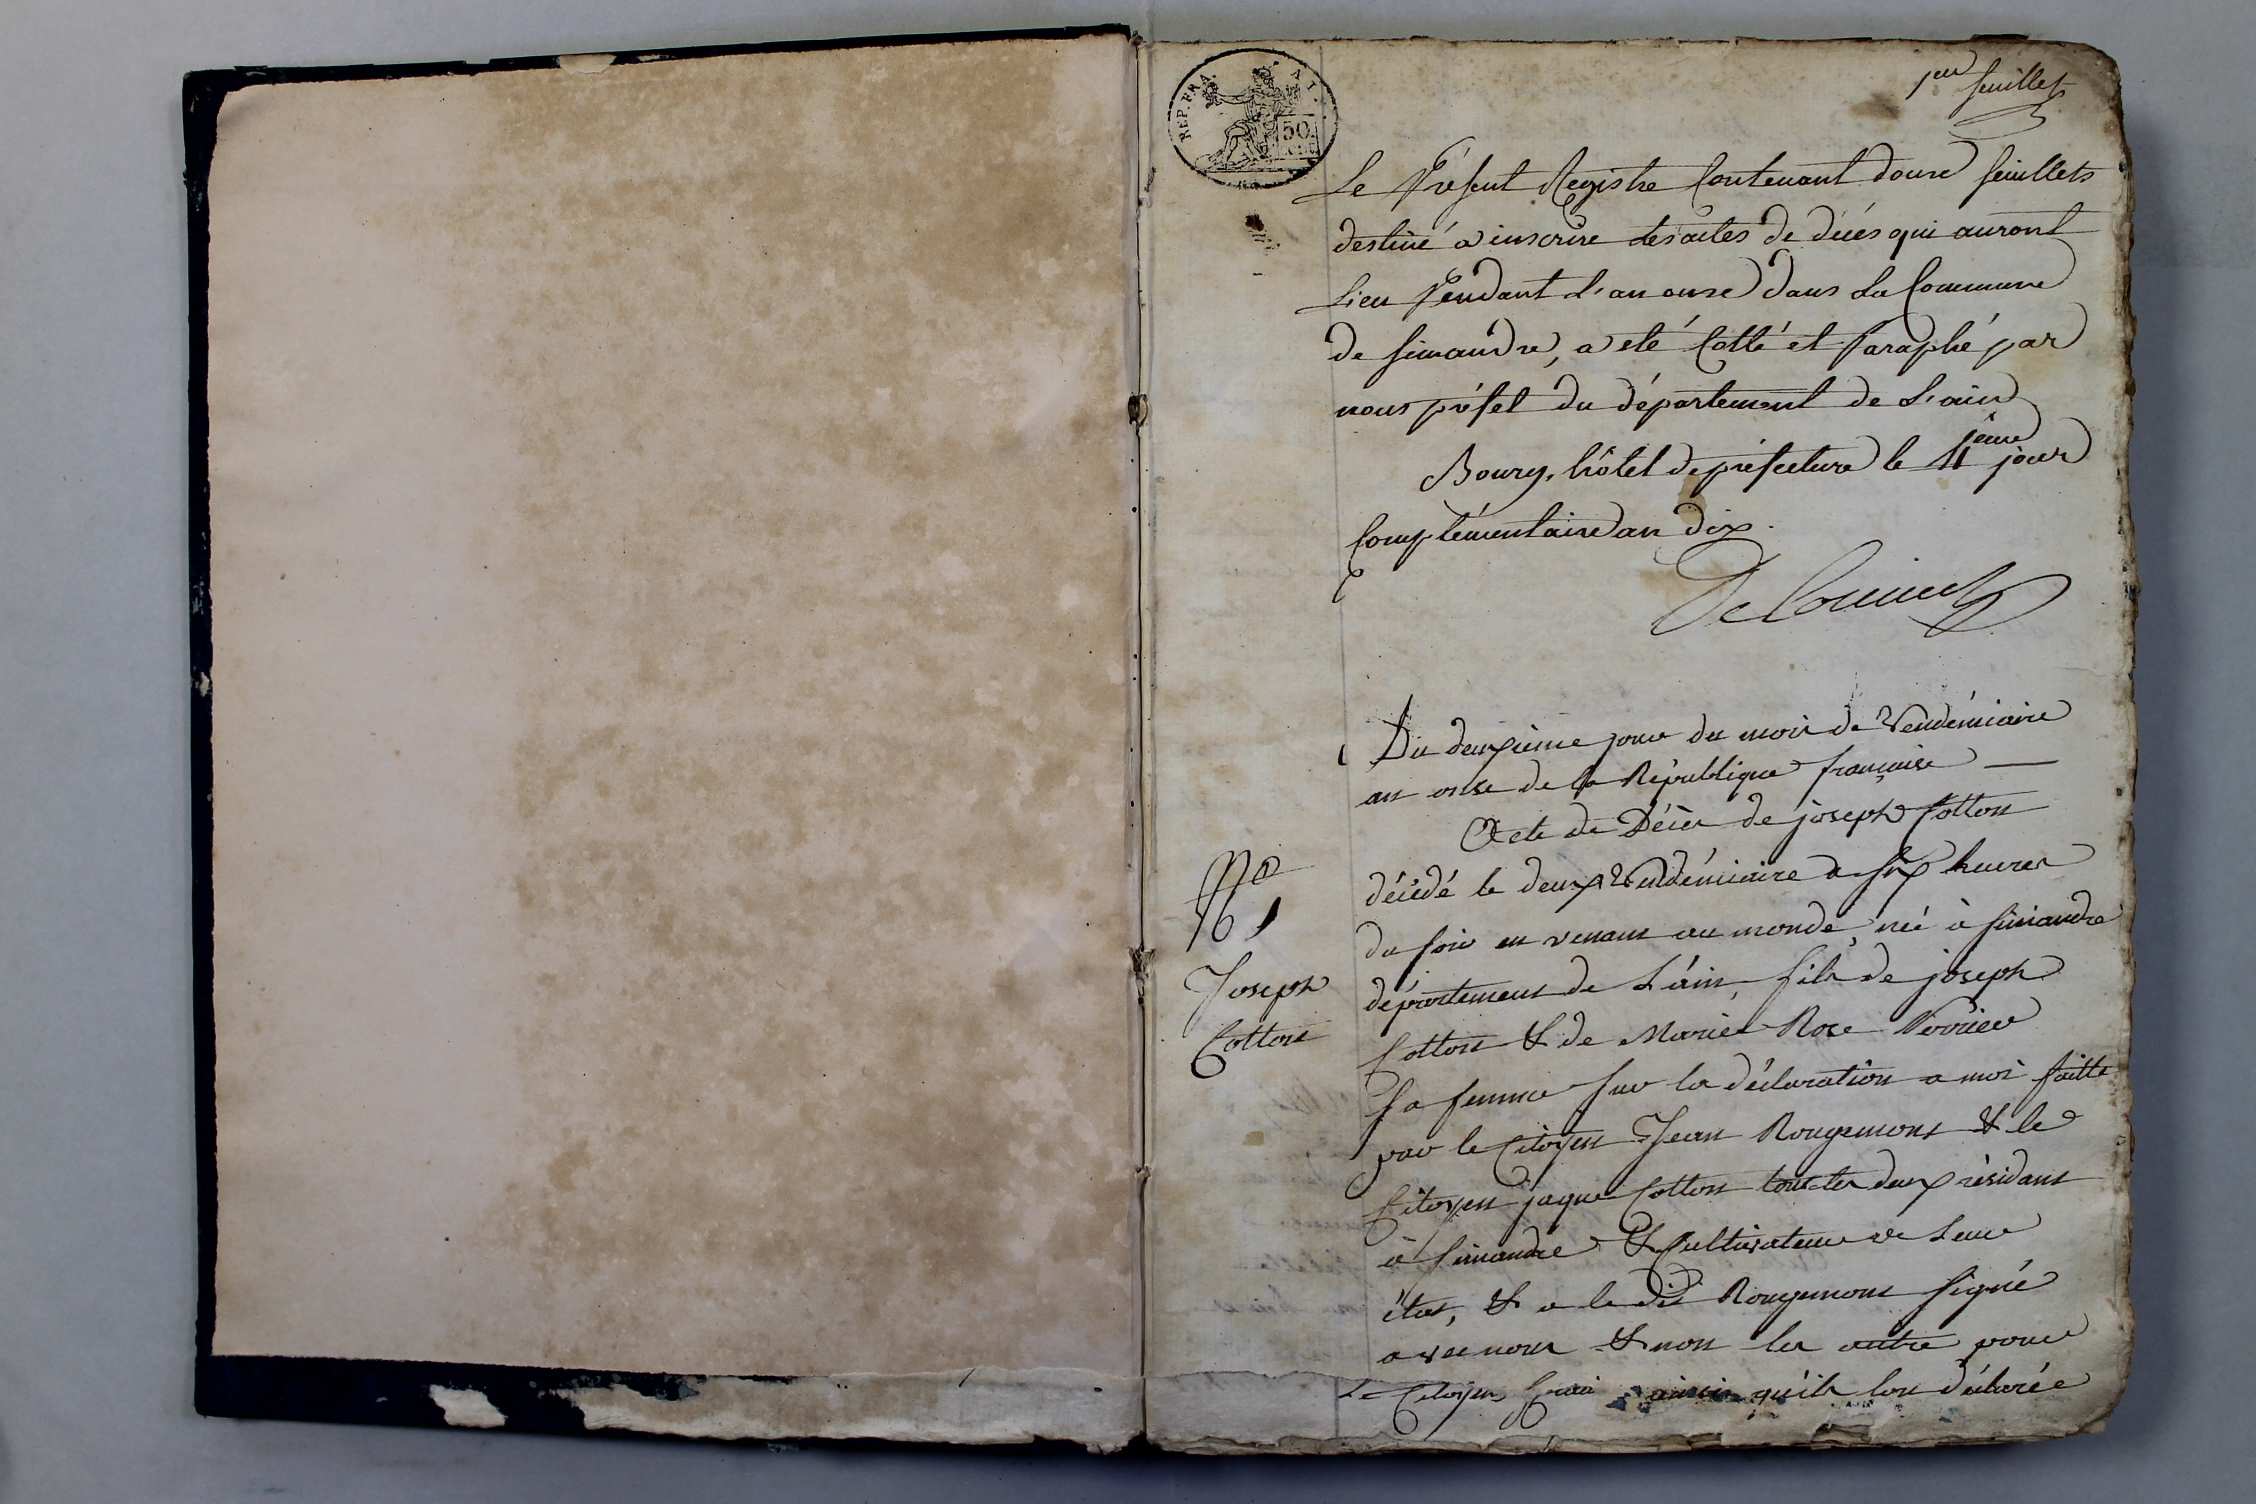 REP. FRA. AT.
50
1er feuillet
Le Présent Registre Contenant douze feuillets
destiné a inscrire les actes de décès qui auront
Lieu Pendant L'an onze dans La Commune
de Simandre, a eté Cotté et Paraphé par
nous préfet du département de L'ain
Bourg, hôtel de préfecture le 4ème jour
Complémentaire an dix.
Du deuxième jour du mois de Vendémiaire
an onse de la République française
Acte de Décès de joseph Cotton
décédé le deux Vendémiaire a six heures
du soir en venant au monde, né à Simandre
département de L'ain, fils de joseph
Cotton & de Marie Rose
Sa femme Sur la déclaration a moi faitte
par le Citoyen Jean Rougemont & le
Citoyen jaque Cotton tous les deux résidant
à Simandre & Cultivateur de Leur
état, & a le dit Rougemont Signé
avec nous & non les autre pour
Le Citoyen ainsi qu'ils lon déclarée
No 1
Joseph
Cotton